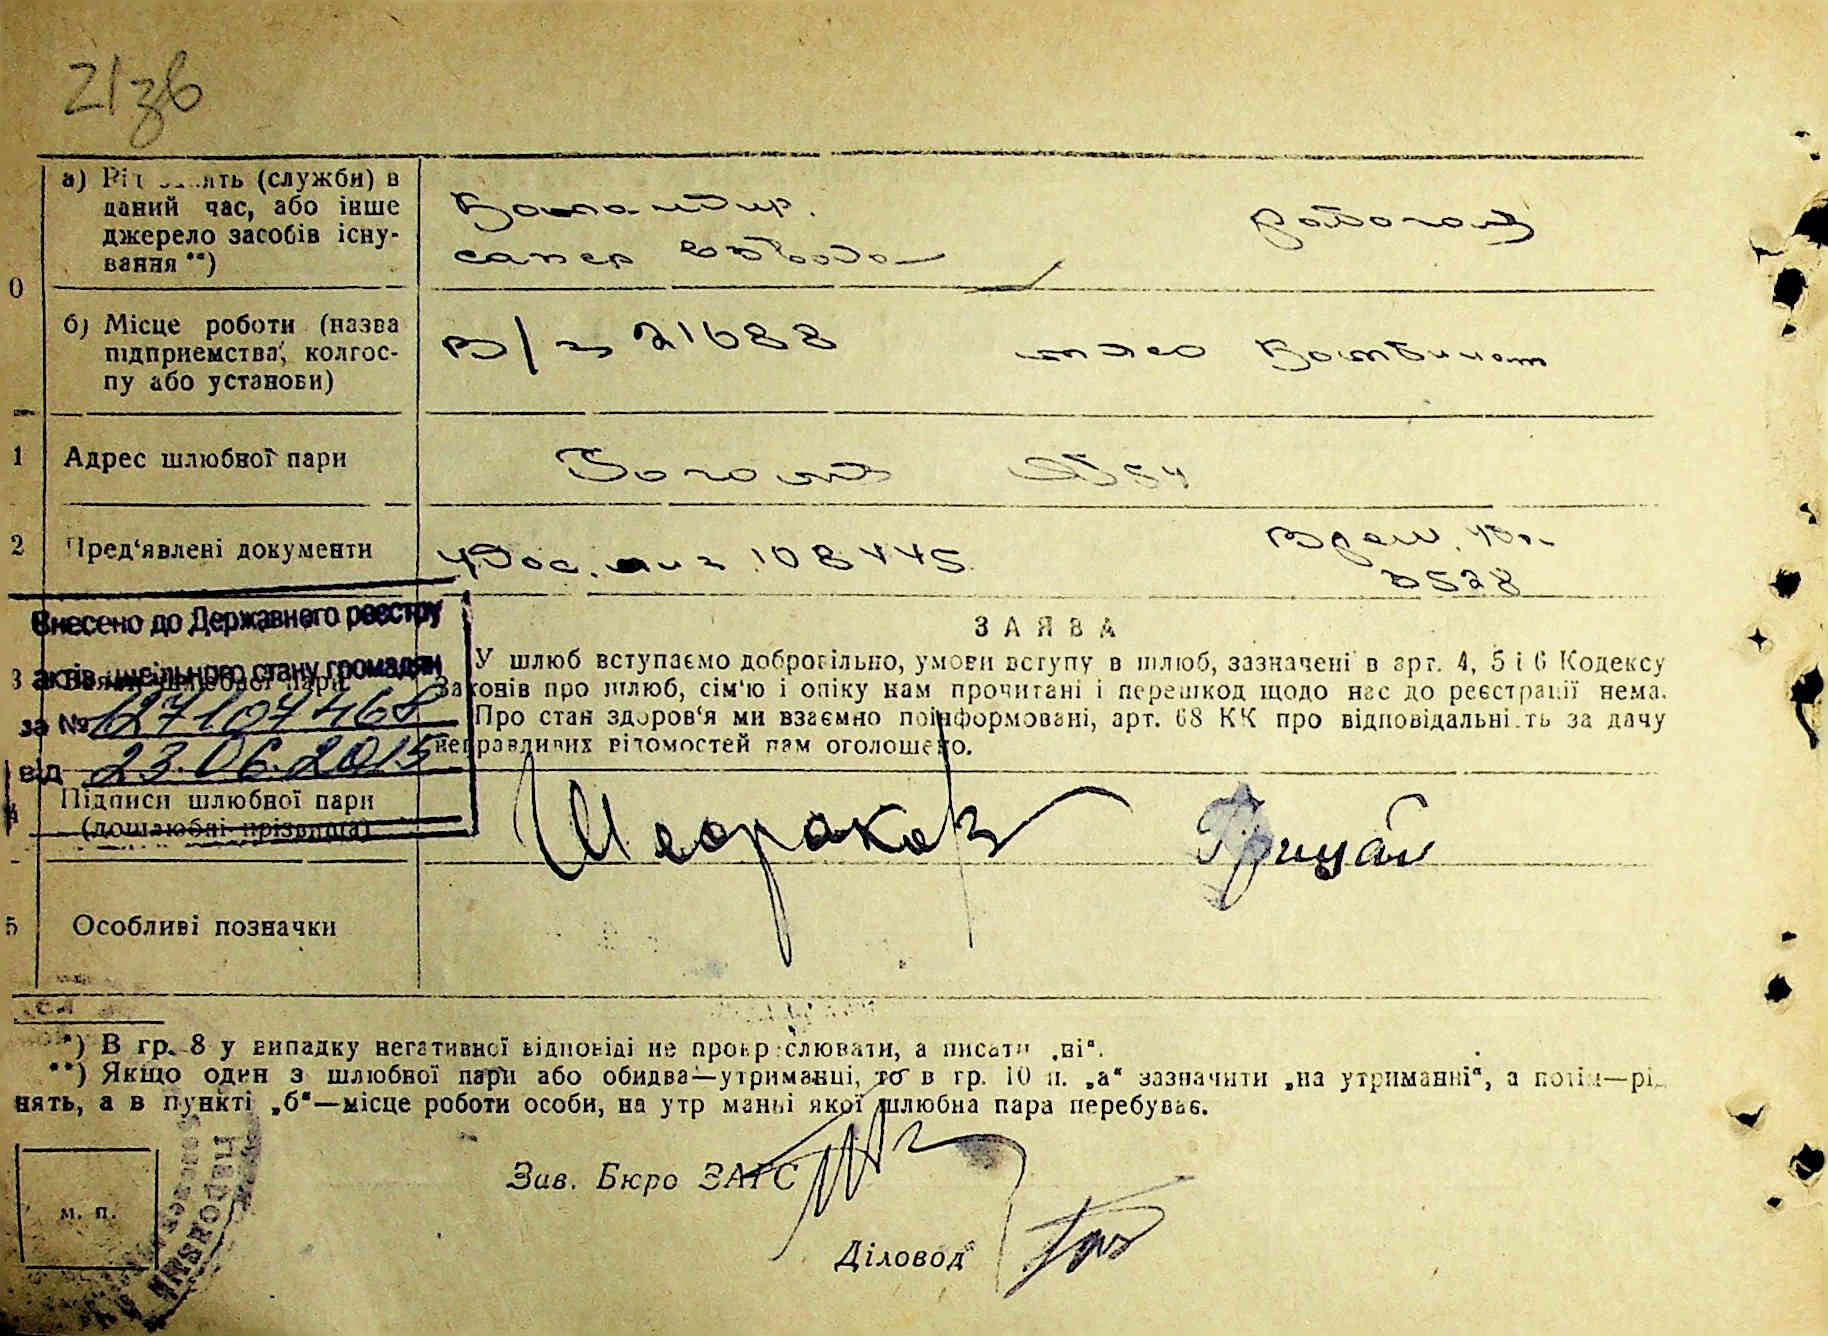 21зв
а) Рід занять (служби) в
даний час, або інше
джерело засобів існу-
вання **)
Командир
сапер взвода
0
б) Місце роботи (назва
підприемства, колгос-
пу або установи)
в/ч 21688
мясо комбинат
1 Адрес шлюбної пари
2 Пред‘явлені документи
удос. лич 108445
Врем.
Внесено до Державного реєстру
актів цивільного стану громадян
за № 127107468
від 23.06.2015
3 Заява шлюбної пари
ЗАЯВА
У шлюб вступаємо добровільно, умови вступу в шлюб, зазначені в арт. 4, 5 і 6 Кодексу
законів про шлюб, сім‘ю і опіку нам прочитані і перешкод щодо нас до реєстрації нема.
Про стан здоров‘я ми взаємно поінформовані, арт. 68 КК про відповідальність за дачу
неправдивих відомостей нам оголошено.
4 Підписи шлюбної пари
(дошлюбні прізвища)
Грицай
5 Особливі позначки
*) В гр. 8 у випадку негативної відповіді не прокреслювати, а писати „ні“.
**) Якщо один з шлюбної пари або обидва—утриманці, то в гр. 10 п. „а“ зазначити „на утриманні“, а потім—рід
нять, а в пункті „б“—місце роботи особи, на утриманні якої шлюбна пара перебуває.
Зав. Бюро ЗАГС
м. п.
Діловод